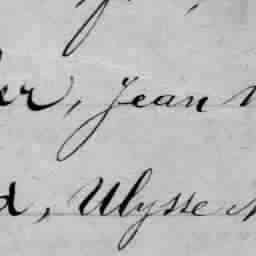 er, Jean
d, Ulysse